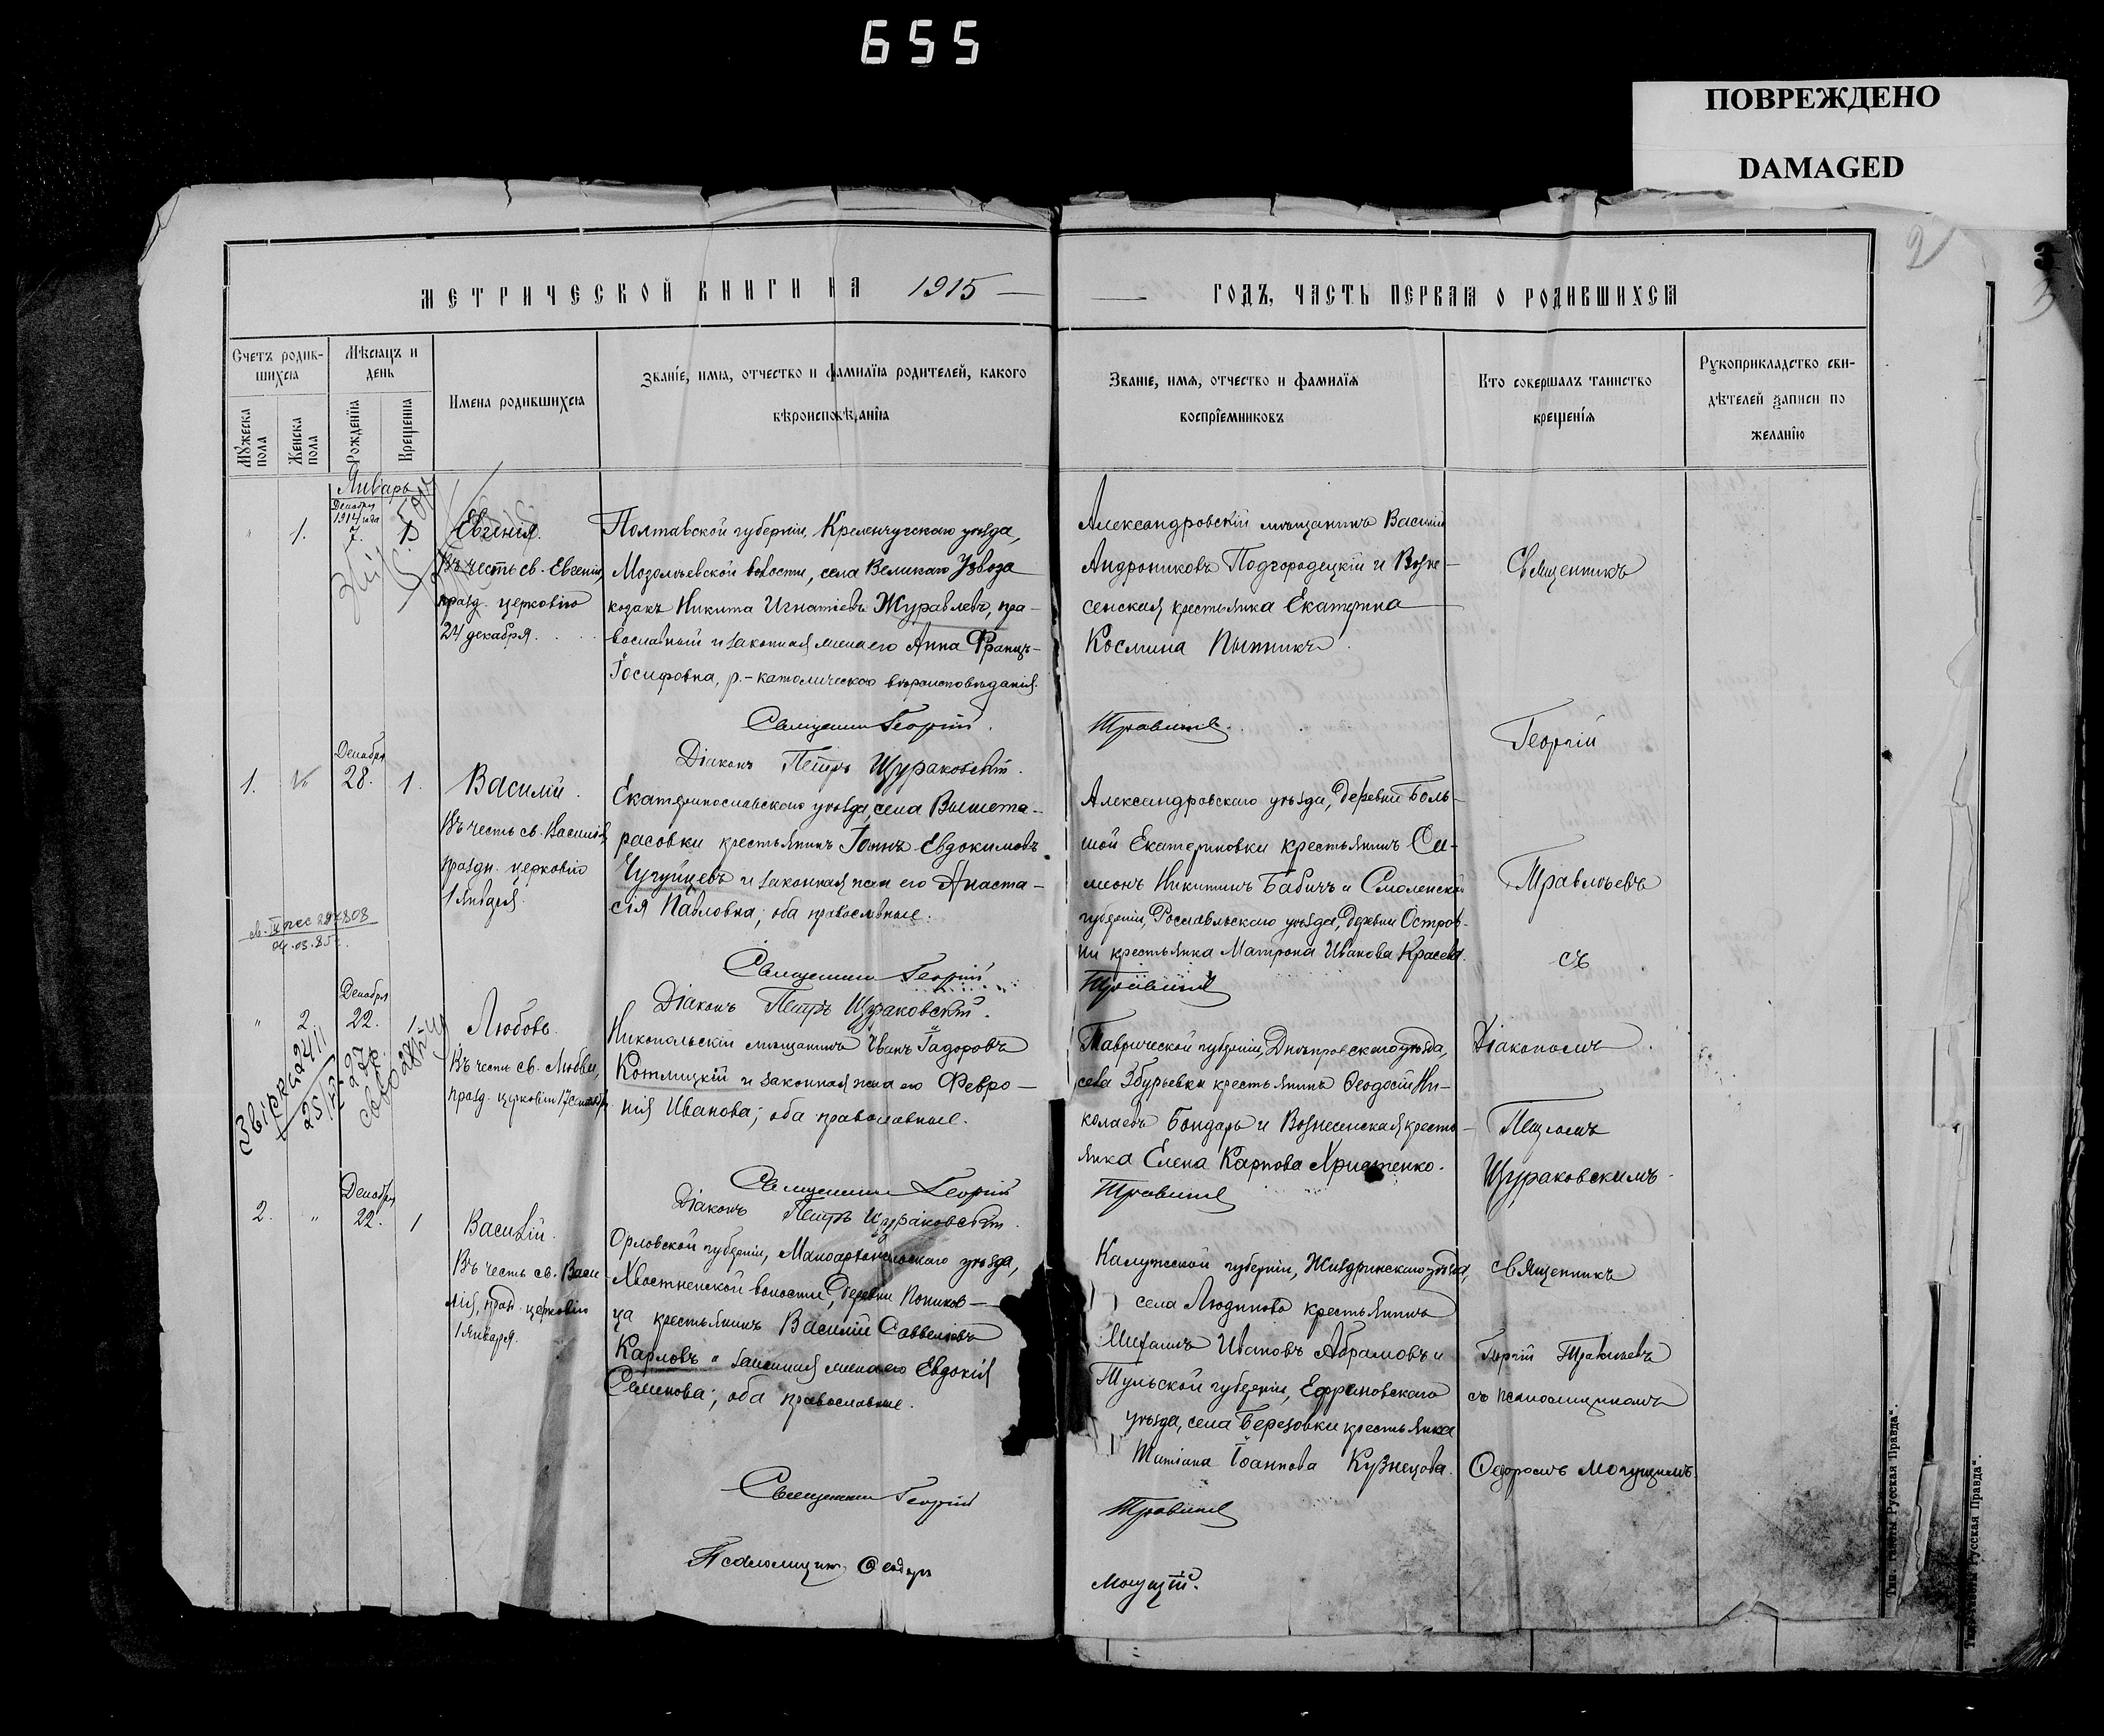 655
ПОВРЕЖДЕНО
DAMAGED
2
3
МЕТРИЧЕСКОЙ КНИГИ НА 1915
ГОДЪ, ЧАСТЬ ПЕРВАЯ О РОДИВШИХСЯ
Счетъ родив-
шихся
Мѣсяцъ и
день
Мужеска
пола
Женска
пола
Рожденія
Крещенія
Имена родившихся
Званіе, имя, отчество и фамилія родителей, какого
вѣроисповѣданія
Званіе, имя, отчество и фамилія
воспріемниковъ
Кто совершалъ таинство
крещенія
Рукоприкладство сви-
дѣтелей записи по
желанію
Январь
Декабря
1914 года
1.
7.
Евгенія.
Въ честь св. Евгеніи,
празд. церковію
24 декабря.
Полтавской губерніи, Кременчугскаго уѣзда,
Мозолѣевской волости, села Великаго Узвоза
козакъ Никита Игнатіевъ Журавлевъ, пра-
вославный и законная жена его Анна Францъ-
Іосифовна, р.-католическаго вѣроисповѣданія.
Александровскій мѣщанинъ Василій
Андрониковъ Подгородецкій и Возне-
сенская крестьянка Екатерина
Космина Пынникъ.
Священникъ
Георгій
Травлѣевъ
съ
Діакономъ
Петромъ
Щураковскимъ.
Священникъ Георгій
Діаконъ Петръ Щураковскій.
Декабря
1.
28.
1.
Василій.
Въ честь св. Василія,
праздн. церковію
1 января.
Екатеринославскаго уѣзда, села Вышета-
расовки крестьянинъ Іоаннъ Евдокимовъ
Чугуйцевъ и законная жена его Анаста-
сія Павловна; оба православные.
Александровскаго уѣзда, деревни Боль-
шой Екатериновки крестьянинъ Си-
меонъ Никитинъ Бабичъ и Смоленской
губерніи, Рославльскаго уѣзда, деревни Остров-
ни крестьянка Матрона Иванова Красева.
Священникъ Георгій
Діаконъ Петръ Щураковскій.
Декабря
2
22.
1.
Любовь.
Въ честь св. Любви,
празд. церковію 17 сентября
Никопольскій мѣщанинъ Иванъ
Котлицкій и законная жена его Февро-
нія Иванова; оба православные.
Таврической губерніи, Днѣпровскаго уѣзда,
села Збурьевки крестьянинъ Ѳеодосій Ни-
колаевъ Бондарь и Вознесенская кресть-
янка Елена Карпова Христенко.
Священникъ Георгій
Діаконъ Петръ Щураковскій.
Декабря
2.
22.
1
Василій.
Въ честь св. Васи-
лія, празд. церковію
1 января.
Орловской губерніи, Малоархангельскаго уѣзда,
волости, деревни Поников-
ца крестьянинъ Василій Саввеліевъ
Карловъ и законная жена его Евдокія
Семенова; оба православные.
Калужской губерніи, Жиздринскаго уѣзда,
села Людиново крестьянинъ
Михаилъ Ивановъ Абрамовъ и
Тульской губерніи, Ефремовскаго
уѣзда, села Березовки крестьянка
Татіана Іоаннова Кузнецова.
священникъ
Георгій Травлѣевъ
съ псаломщикомъ
Ѳедоромъ Могущимъ.
Священникъ Георгій
Псаломщикъ Ѳеодоръ
Могущій.
Тип. газеты „Русская Правда“.
„Русская Правда“.